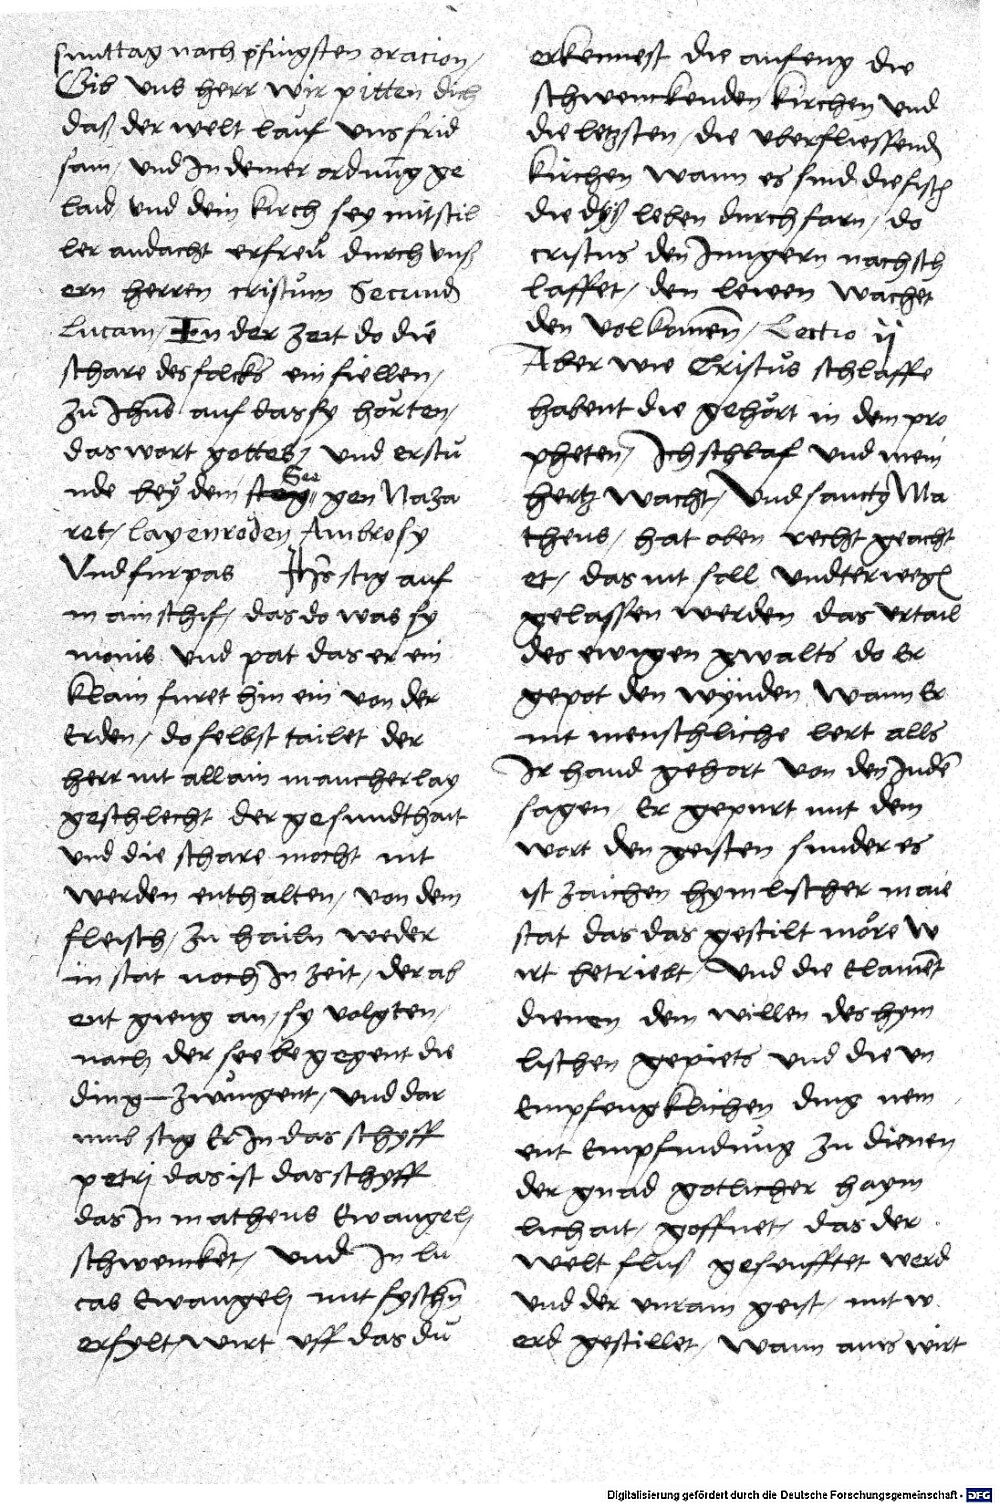 sunttag nach pfingsten oracion /
Gib uns herr wir pitten dich
daß der welt lauf uns frid
sam / und In deiner ordnūg ge
laid und dein kirch sey mit stil
ler andacht erfreu durch uns
ern herren cristum Secundū
Lucam / In der zeit do die
schare des folcks ein fiellen /
zu Jhūs auf das sy horten /
das wort gottes / und erstu
nde bey dem See gen Naza
ret / layenroden Ambrosy
Und furpas Jhs stig auf
in ain schif / das do was sy
monis und pat das er ein
klain furet hin ein von der
Erden / do selbst tailet der
herr nit allain mancherlay
geschlecht der gesundthait
und die schare mocht nit
werden enthalten / von dem
fleisch / zu hailn weder
in stat noch In zeit / der ab
ent gieng an / sy volgten /
nach der see begegent die
ding zwungent / und dar
umb stig Er In das schyff
petri das ist das schyff
das In matheus Ewangelj
schwencket / und In lu
cas Ewangelj mit fyschn̄
erfylt wirt uff das du
erkennest die anfeng die
schwenckenden kirchen und
die letzsten / die uberfliessend
kirchen wann es sind die fisch
die dyß leben durchfarn / do
cristus den Jungern nachsch
laffet / den lewen wachet
den volkomen̄ / Lectio ij
Aber wie Cristus schlaffe
habent die gehort in dem pro
pheten / Ich schlaf und mein
hertz wacht / Und sancty Ma
theus / hat oben recht geacht
et / das nit soll undterwegn
gelassen werden das urtail
des ewigen gwalts do Er
gepot den wynden Wann Er
nit menschliche lert alls
Ir hand gehort von den Judē
sagen Er gepurt mit dem
wort den geisten sunder es
ist zaichen hymlischer maie
stat das das gestilt more w
irt betriebt / Und die Elamēt
dienen dem willen des hym
lischen gepiets und die un
Empfengklichen ding nem
ent Empfindūng zu dienen
der gnad gotlicher haym
lichait / goffnet / das der
welt fluß gesenfftet werd
und der unrain geist / mit w
erd gestillet / wann ains wirt
Digitalisierung gefördert durch die Deutsche Forschungsgemeinschaft - DFG